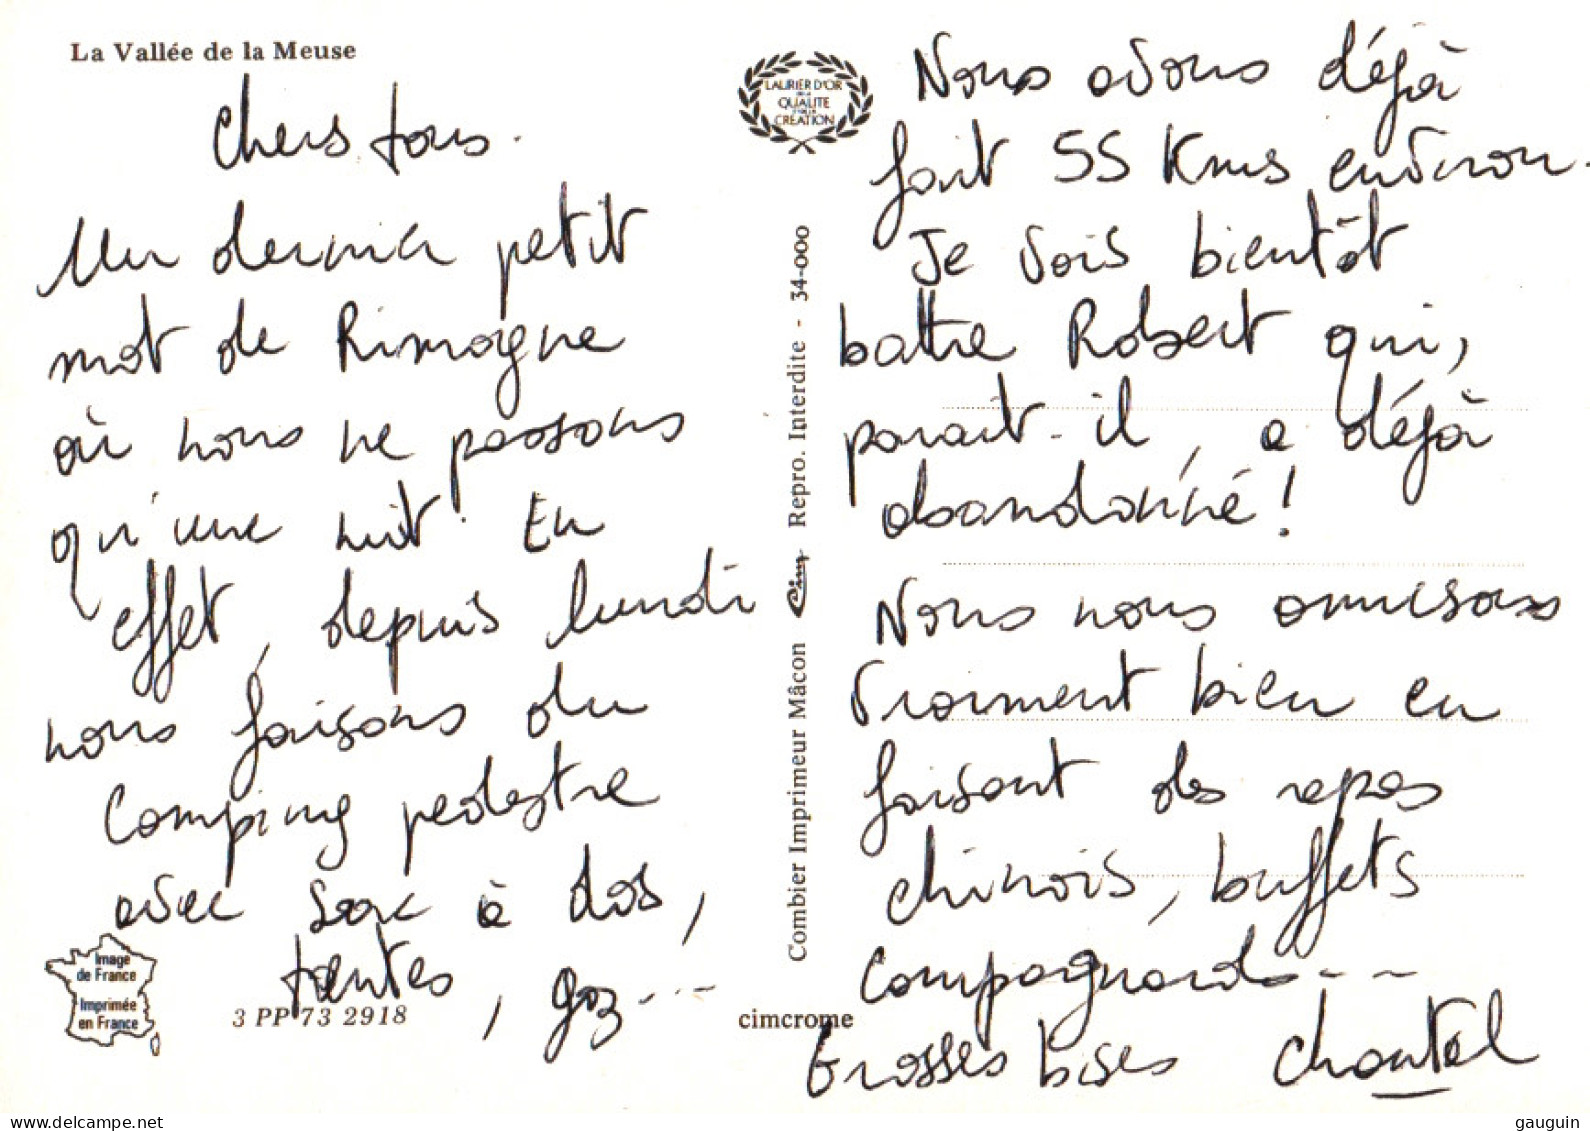 La Vallée de la Meuse
Chers tous.
Un dernier petit
mot de Rimogne
où nous ne passons
qu'une nuit. En
effet, depuis lundi
nous faisons du
Camping pedestre
avec sac à dos,
tentes, gaz...
Image
de France
Imprimée
en France
3 PP 73 2918
LAURIER D'OR
DE LA
QUALITE
CREATION
Combier Imprimeur Mâcon Cim Repro. Interdite - 34-000
cimcrome
Nous avons déjà
fait 55 Kms environ.
Je vais bientôt
battre Robert qui,
parait-il, a déjà
abandonné !
Nous nous amusons
vraiment bien en
faisant des repas
chinois, buffets
Campagnards...
Grosses bises Chantal
gauguin